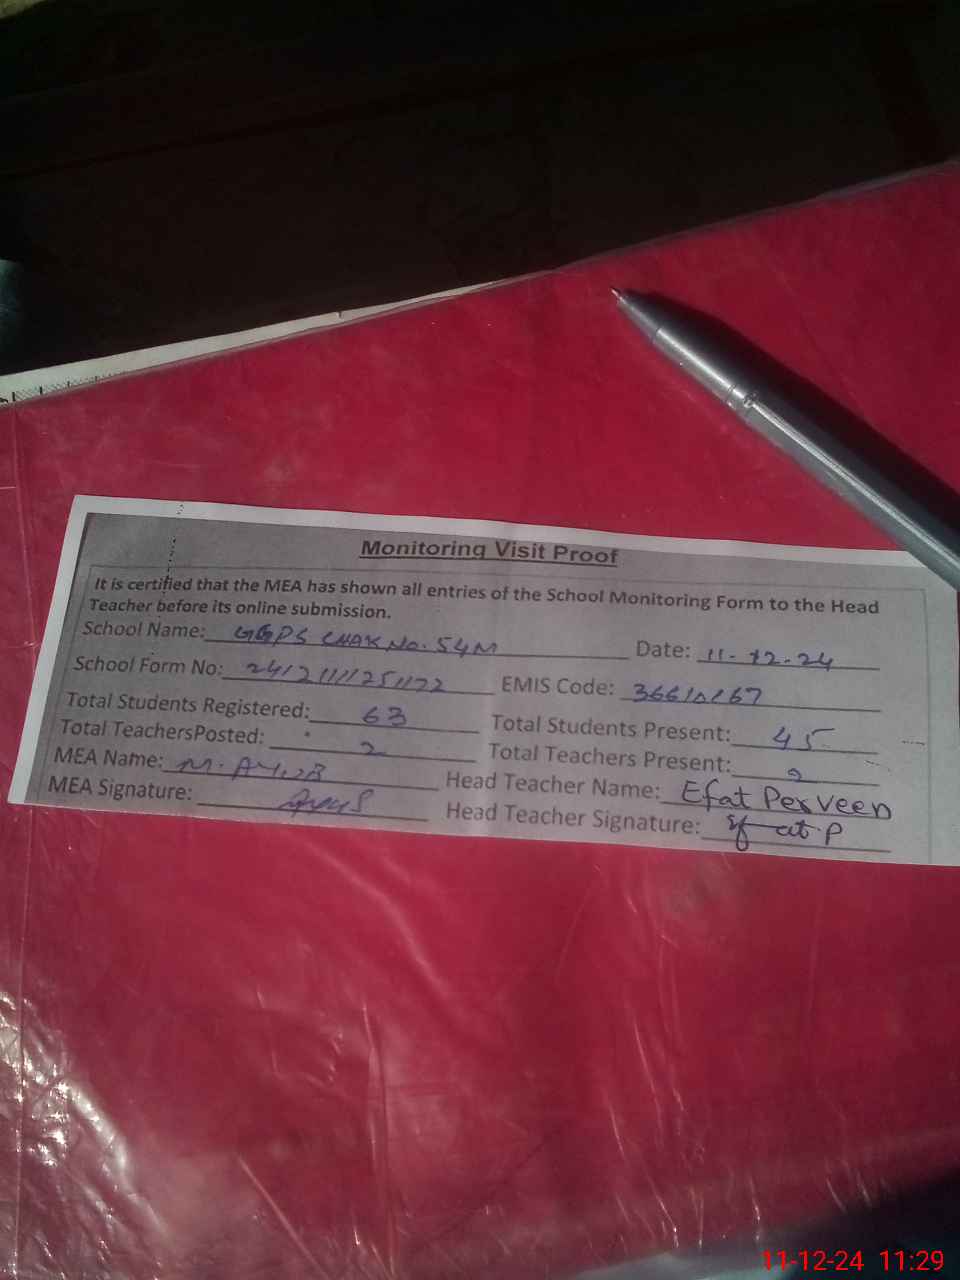 Monitoring Visit Proof
It is certified that the MEA has shown all entries of the School Monitoring Form to the Head
Teacher before its online submission.
School Name: GGPS CHAK No. 54M Date: 11-12-24
School Form No: EMIS Code:
Total Students Registered: 63 Total Students Present: 45
Total TeachersPosted: 2 Total Teachers Present: 2
MEA Name: M. AYUB Head Teacher Name: Efat Perveen
MEA Signature: Head Teacher Signature: Efat P
11-12-24 11:29